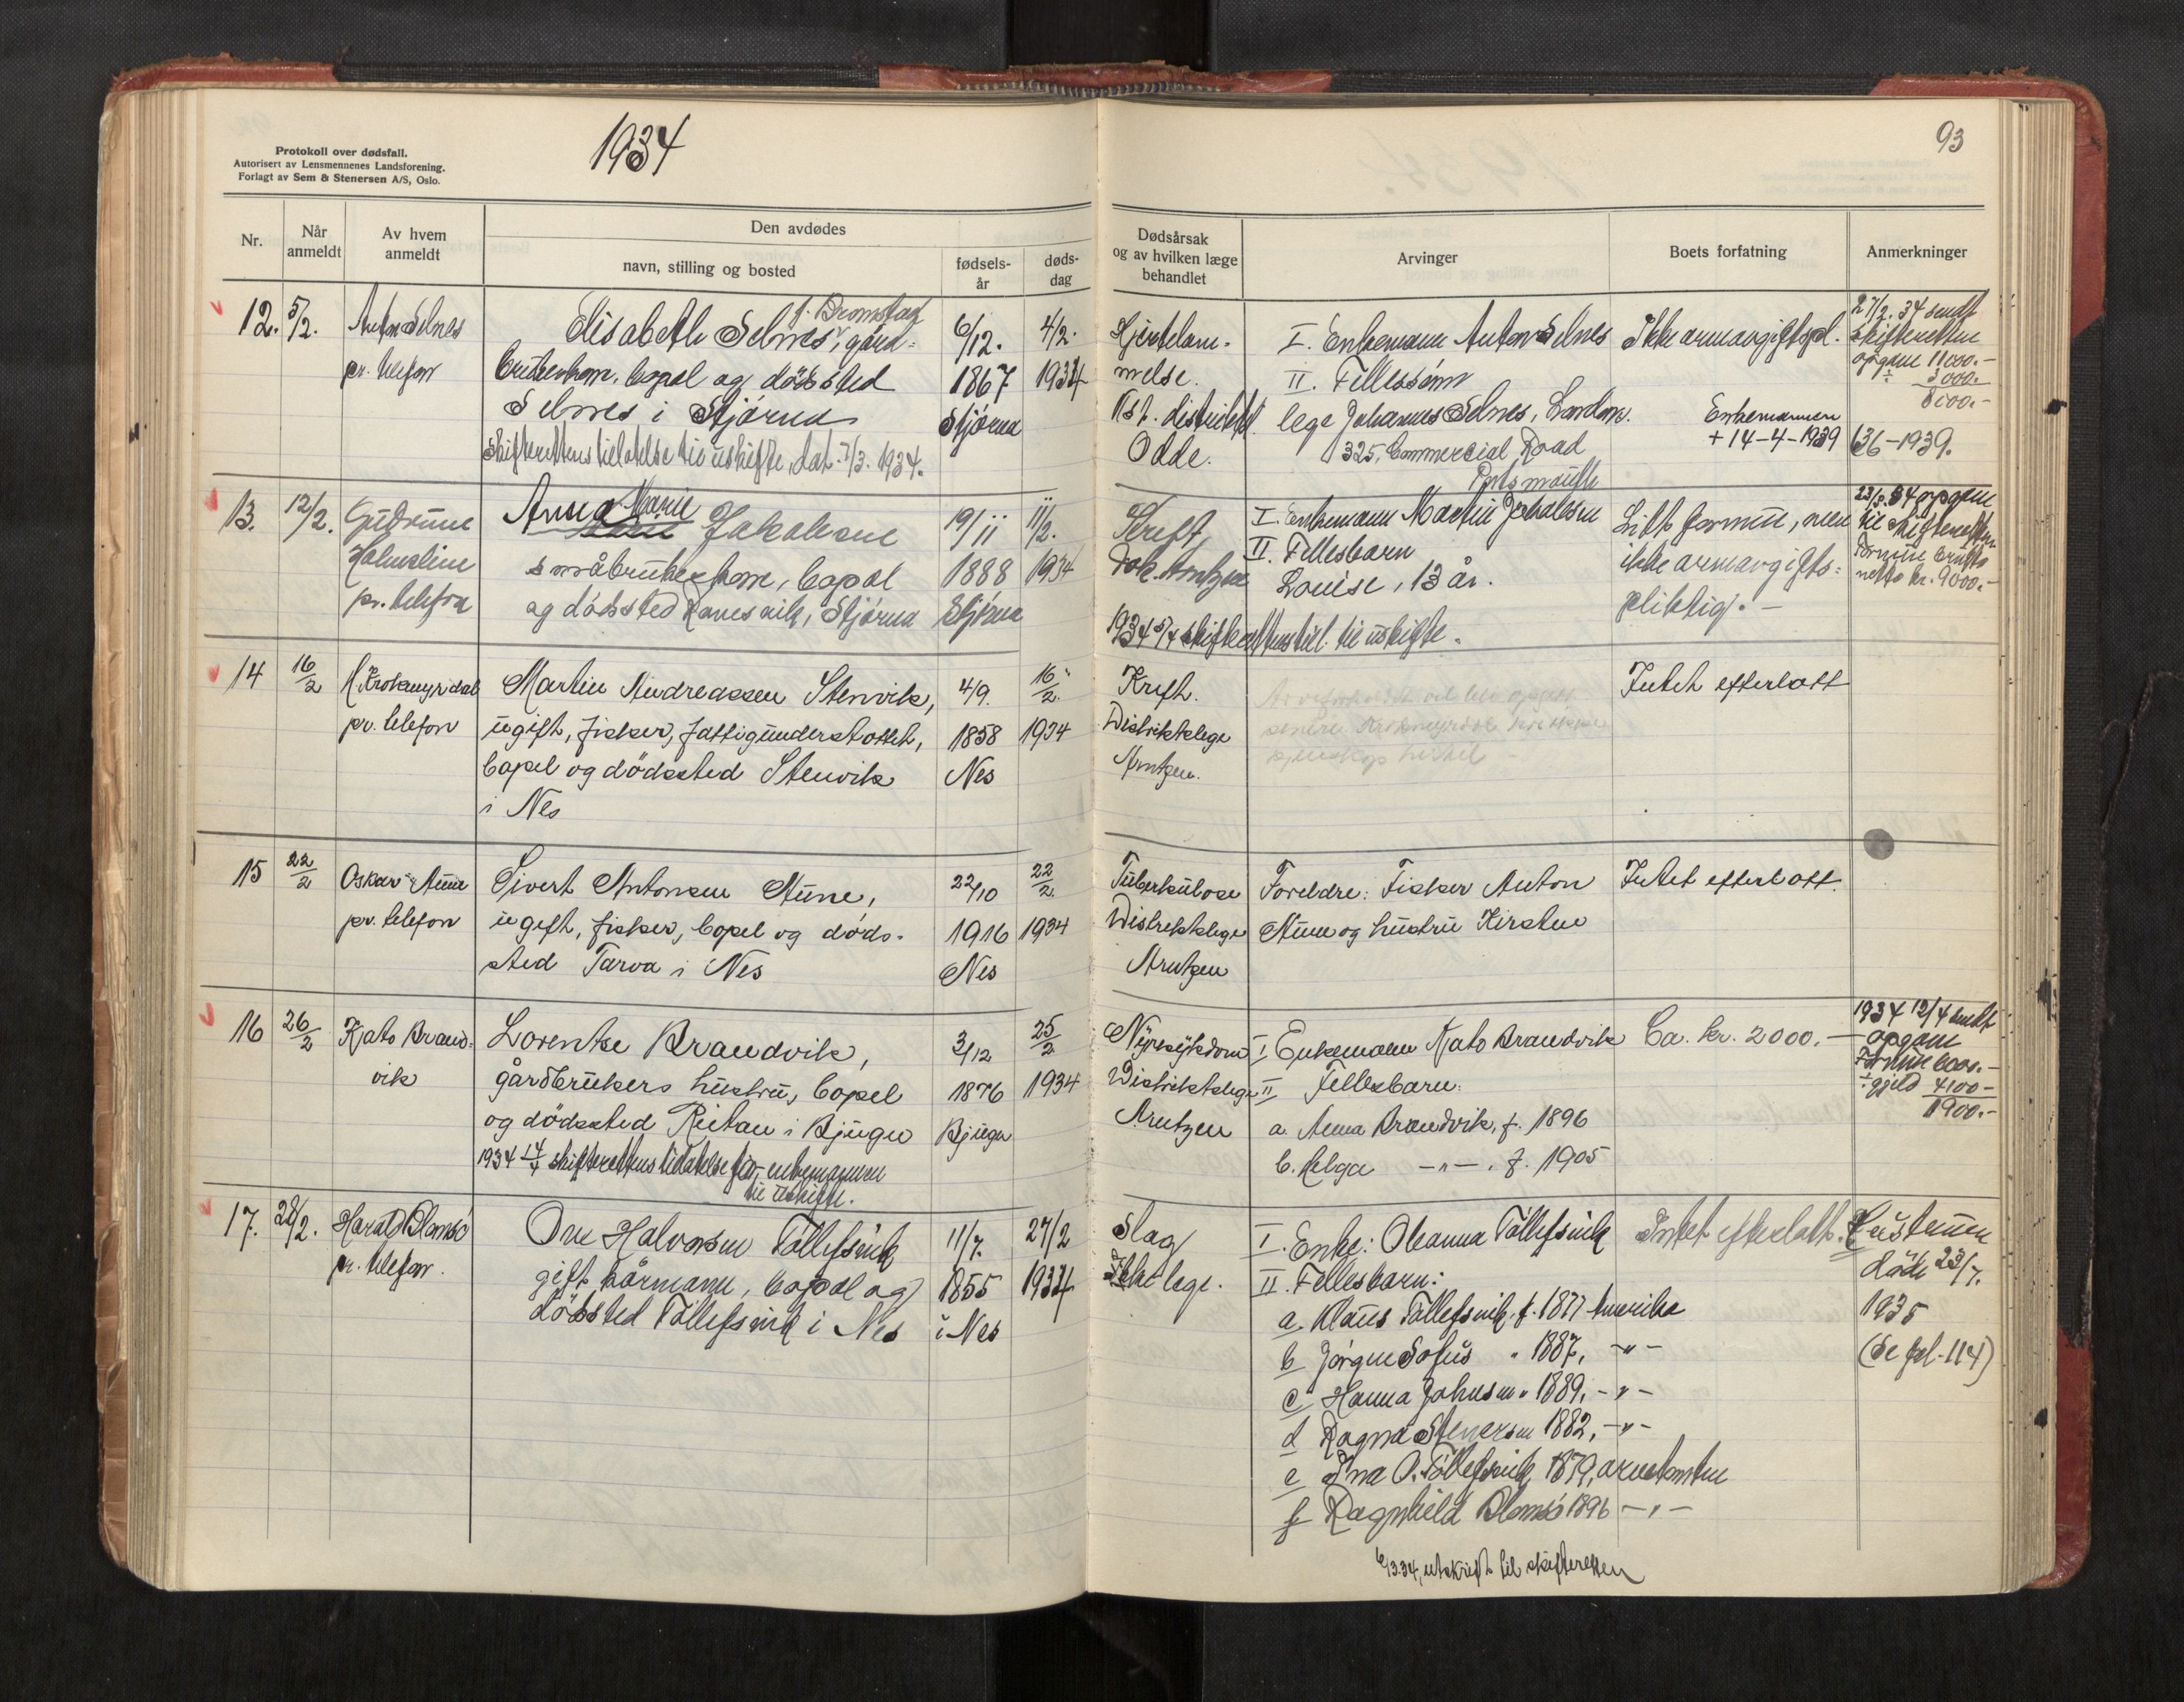 Protokoll over dødsfall.
Autorisert av Lensmennenes Landsforening.
Forlagt av Sem & Stenersen A/S, Oslo.
1934
93
Nr.
Når anmeldt
Av hvem anmeldt
Den avdødes
navn, stilling og bosted
fødsels-år
døds-dag
Dødsårsak
og av hvilken læge
behandlet
Arvinger
Boets forfatning
Anmerkninger
12. 5/2.
Anton Selnes
pr. telefon
f. Bromstad
Elisabeth Selnes, gård-
brukerkone, bopæl og dödssted
Selnes i Stjórna
Skifterettens tillatelse til uskifte, dat. 7/3. 1934.
6/12.
1867
Stjórna
4/2.
1934
Hjertelam-
melse.
Ast. distriktsl.
Odde.
I. Enkemann Anton Selnes
II. Fellessónn
lege Johannes Selnes, London.
325, Commercial Road
Portsmouth
Ikke arveavgiftspl.
Enkemannen
+ 14-4-1939
27/2. 34 sendt
skifteretten
opgave 11000.-
÷ 3000.-
8000.-
136-1939.
13. 12/2.
Gudrun
Holmslin
pr. telefon
Anna Marie Jakobsen
småbrukerkone, bopæl
og dödssted Ramsvik, Stjórna
19/11
1888
Stjórna
11/2.
1934
Kreft,
Dok. Arntzen
1934 5/4 skifterettens till. til uskifte.
I. Enkemann Martin Jakobsen
II. Fellesbarn
Louise, 13 år.
Litt formue, men
ikke arveavgifts-
pliktig. -
23/3. 34 opgave
til skifteretten
Formue brutto
netto kr. 9000.-
14 16/2
H. Krokmyrdal
pr. telefon
Martin Andreassen Stenvik,
ugift, fisker, fattigunderstottet,
bopel og dödssted Stenvik
i Nes
4/9.
1858
Nes
16/2.
1934
Kreft.
Distriktslege
Arntzen.
Intet efterlatt
15 22/2
Oskar Aune
pr. telefon
Sivert Antonsen Aune,
ugift, fisker, bopel og döds-
sted Tarva i Nes
22/10
1916
Nes
22/2.
1934
Tuberkulose
Distriktslege
Arntzen
Foreldre: Fisker Anton
Aune og hustru Kirsten
Intet efterlatt.
16 26/2
Kjato Brand-
vik
Lorentse Brandvik,
gårdbrukers hustru, bopel
og dödssted Reitan i Bjugn
1934 14/4 skifterettens tillatelse for enkemannen
til uskifte.
3/12
1876
Bjugn
25/2
1934
Nyresykdom
Distriktslege
Arntzen
I Enkemann Kjato Brandvik
II Fellesbarn:
a. Anna Brandvik, f. 1896
b. Helga -"- , f. 1905
Ca. kr. 2000.-
1934 12/4 sendt
opgave
Formue 6000.-
÷ gjeld 4100-
1900.-
17. 28/2.
Harald Blomsö
pr. telefon.
Ove Halvorsen Töllefsvik
gift kårmann, bopæl og
dödssted Töllefsvik i Nes
11/7.
1855
i Nes
27/2
1934
Slag
Ikke lege.
I. Enke: Oleanna Töllefsvik
II. Fellesbarn:
a Klaus Töllefsvik, f. 1877 Amerika
b Jörgen Sofus " 1887, -"-
c Hanna Johnsen " 1889, -"-
d Ragna Stenersen 1882, -"-
e Ina O. Töllefsvik, 1879, arvetomten
f Ragnhild Blomsö 1896 -"-
6/3.34, utskrift til skifteretten
Intet efterlatt.
Hustruen
döde 23/7.
1935
(Se fol-114)